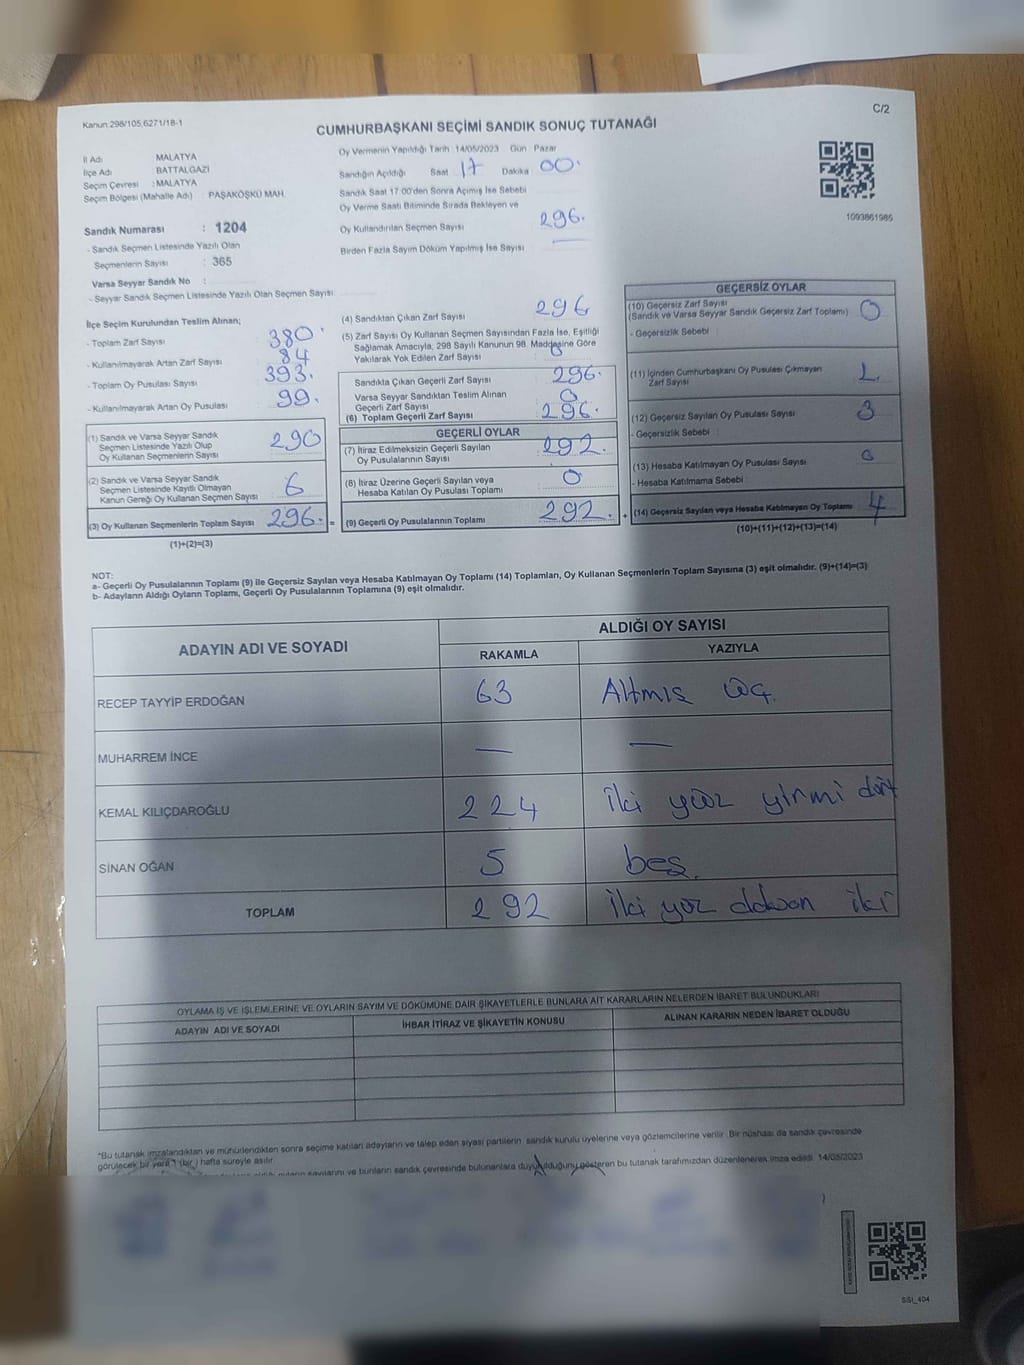 Kanun:298/105,6271/18-1
C/2
CUMHURBAŞKANI SEÇİMİ SANDIK SONUÇ TUTANAĞI
İl Adı MALATYA
İlçe Adı BATTALGAZİ
Seçim Çevresi : MALATYA
Seçim Bölgesi (Mahalle Adı) : PAŞAKÖŞKÜ MAH.
Sandık Numarası : 1204
- Sandık Seçmen Listesinde Yazılı Olan
Seçmenlerin Sayısı : 365
Varsa Seyyar Sandık No :
- Seyyar Sandık Seçmen Listesinde Yazılı Olan Seçmen Sayısı:
Oy Vermenin Yapıldığı Tarih 14/05/2023 Gün Pazar
Sandığın Açıldığı Saat 17 Dakika 00.
Sandık Saat 17:00'den Sonra Açmış İse Sebebi
Oy Verme Saati Bitiminde Sırada Bekleyen ve
Oy Kullandırılan Seçmen Sayısı 296.
Birden Fazla Sayım Döküm Yapılmış İse Sayısı —
1093861985
İlçe Seçim Kurulundan Teslim Alınan;
- Toplam Zarf Sayısı 380
- Kullanılmayarak Artan Zarf Sayısı 84
- Toplam Oy Pusulası Sayısı 393.
- Kullanılmayarak Artan Oy Pusulası 99.
(1) Sandık ve Varsa Seyyar Sandık
Seçmen Listesinde Yazılı Olup
Oy Kullanan Seçmenlerin Sayısı 290
(2) Sandık ve Varsa Seyyar Sandık
Seçmen Listesinde Kayıtlı Olmayan
Kanun Gereği Oy Kullanan Seçmen Sayısı 6
(3) Oy Kullanan Seçmenlerin Toplam Sayısı 296. =
(1)+(2)=(3)
(4) Sandıktan Çıkan Zarf Sayısı 296
(5) Zarf Sayısı Oy Kullanan Seçmen Sayısından Fazla İse, Eşitliği
Sağlamak Amacıyla, 298 Sayılı Kanunun 98. Maddesine Göre
Yakılarak Yok Edilen Zarf Sayısı : 0
Sandıkta Çıkan Geçerli Zarf Sayısı 296.
Varsa Seyyar Sandıktan Teslim Alınan
Geçerli Zarf Sayısı 0
(6) Toplam Geçerli Zarf Sayısı 296.
GEÇERLİ OYLAR
(7) İtiraz Edilmeksizin Geçerli Sayılan
Oy Pusulalarının Sayısı 292.
(8) İtiraz Üzerine Geçerli Sayılan veya
Hesaba Katılan Oy Pusulası Toplamı 0
(9) Geçerli Oy Pusulalarının Toplamı 292. +
GEÇERSİZ OYLAR
(10) Geçersiz Zarf Sayısı
(Sandık ve Varsa Seyyar Sandık Geçersiz Zarf Toplamı) 0
- Geçersizlik Sebebi :
(11) İçinden Cumhurbaşkanı Oy Pusulası Çıkmayan
Zarf Sayısı 1.
(12) Geçersiz Sayılan Oy Pusulası Sayısı 3
- Geçersizlik Sebebi :
(13) Hesaba Katılmayan Oy Pusulası Sayısı 0
- Hesaba Katılmama Sebebi :
(14) Geçersiz Sayılan veya Hesaba Katılmayan Oy Toplamı 4
(10)+(11)+(12)+(13)=(14)
NOT:
a- Geçerli Oy Pusulalarının Toplamı (9) İle Geçersiz Sayılan veya Hesaba Katılmayan Oy Toplamı (14) Toplamları, Oy Kullanan Seçmenlerin Toplam Sayısına (3) eşit olmalıdır. (9)+(14)=(3)
b- Adayların Aldığı Oyların Toplamı, Geçerli Oy Pusulalarının Toplamına (9) eşit olmalıdır.
ADAYIN ADI VE SOYADI
ALDIĞI OY SAYISI
RAKAMLA YAZIYLA
RECEP TAYYİP ERDOĞAN 63 Altmış üç.
MUHARREM İNCE — —
KEMAL KILIÇDAROĞLU 224 iki yüz yirmi dört
SİNAN OĞAN 5 beş.
TOPLAM 292 iki yüz doksan iki
OYLAMA İŞ VE İŞLEMLERİNE VE OYLARIN SAYIM VE DÖKÜMÜNE DAİR ŞİKAYETLERLE BUNLARA AİT KARARLARIN NELERDEN İBARET BULUNDUKLARI
ADAYIN ADI VE SOYADI İHBAR İTİRAZ VE ŞİKAYETİN KONUSU ALINAN KARARIN NEDEN İBARET OLDUĞU
*Bu tutanak imzalandıktan ve mühürlendikten sonra seçime katılan adayların ve talep eden siyasi partilerin sandık kurulu üyelerine veya gözlemcilerine verilir. Bir nüshası da sandık çevresinde
görülecek bir yere 1 (bir ) hafta süreyle asılır.
sayılarını ve bunların sandık çevresinde bulunanlara duyurulduğunu gösteren bu tutanak tarafımızdan düzenlenerek imza edildi. 14/05/2023
SSI_404